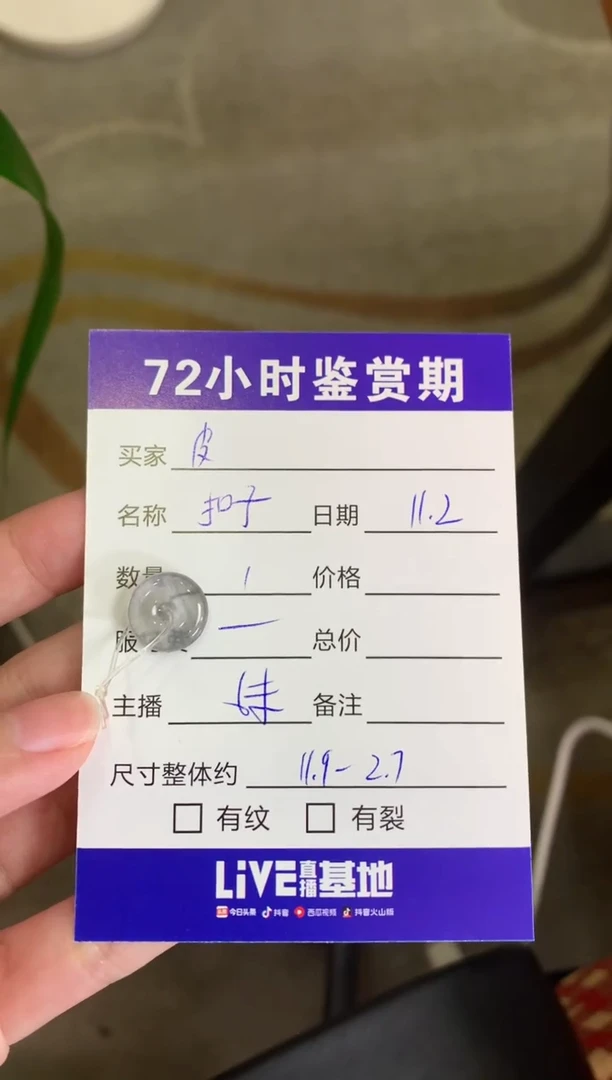 72小时鉴赏期
买家 皮
名称 扣子 日期 11.2
数量 1 价格
服 一 总价
主播 妹 备注
尺寸整体约 11.9-2.7
有纹 有裂
LiVE直播基地
今日头条 抖音 西瓜视频 抖音火山版